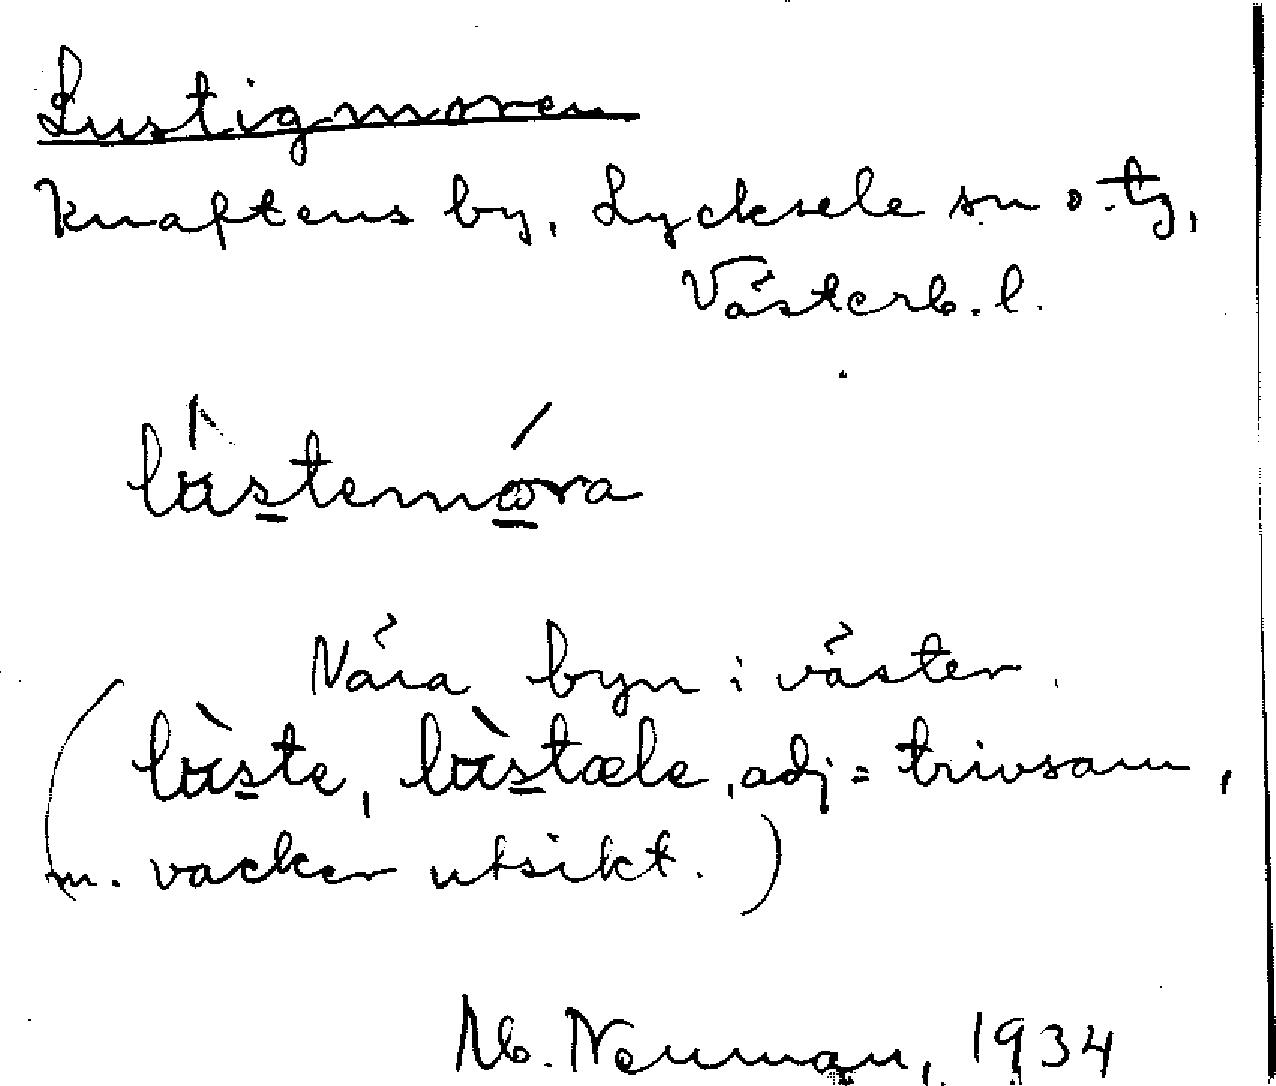 Lustigmoren
Knaftens by, Lycksele sn o. tg,
Västerb. l.
lùstemóra
Nära byn i väster.
(lùste, lùstæle, adj = trivsam,
m. vacker utsikt.)
Neuman, 1934